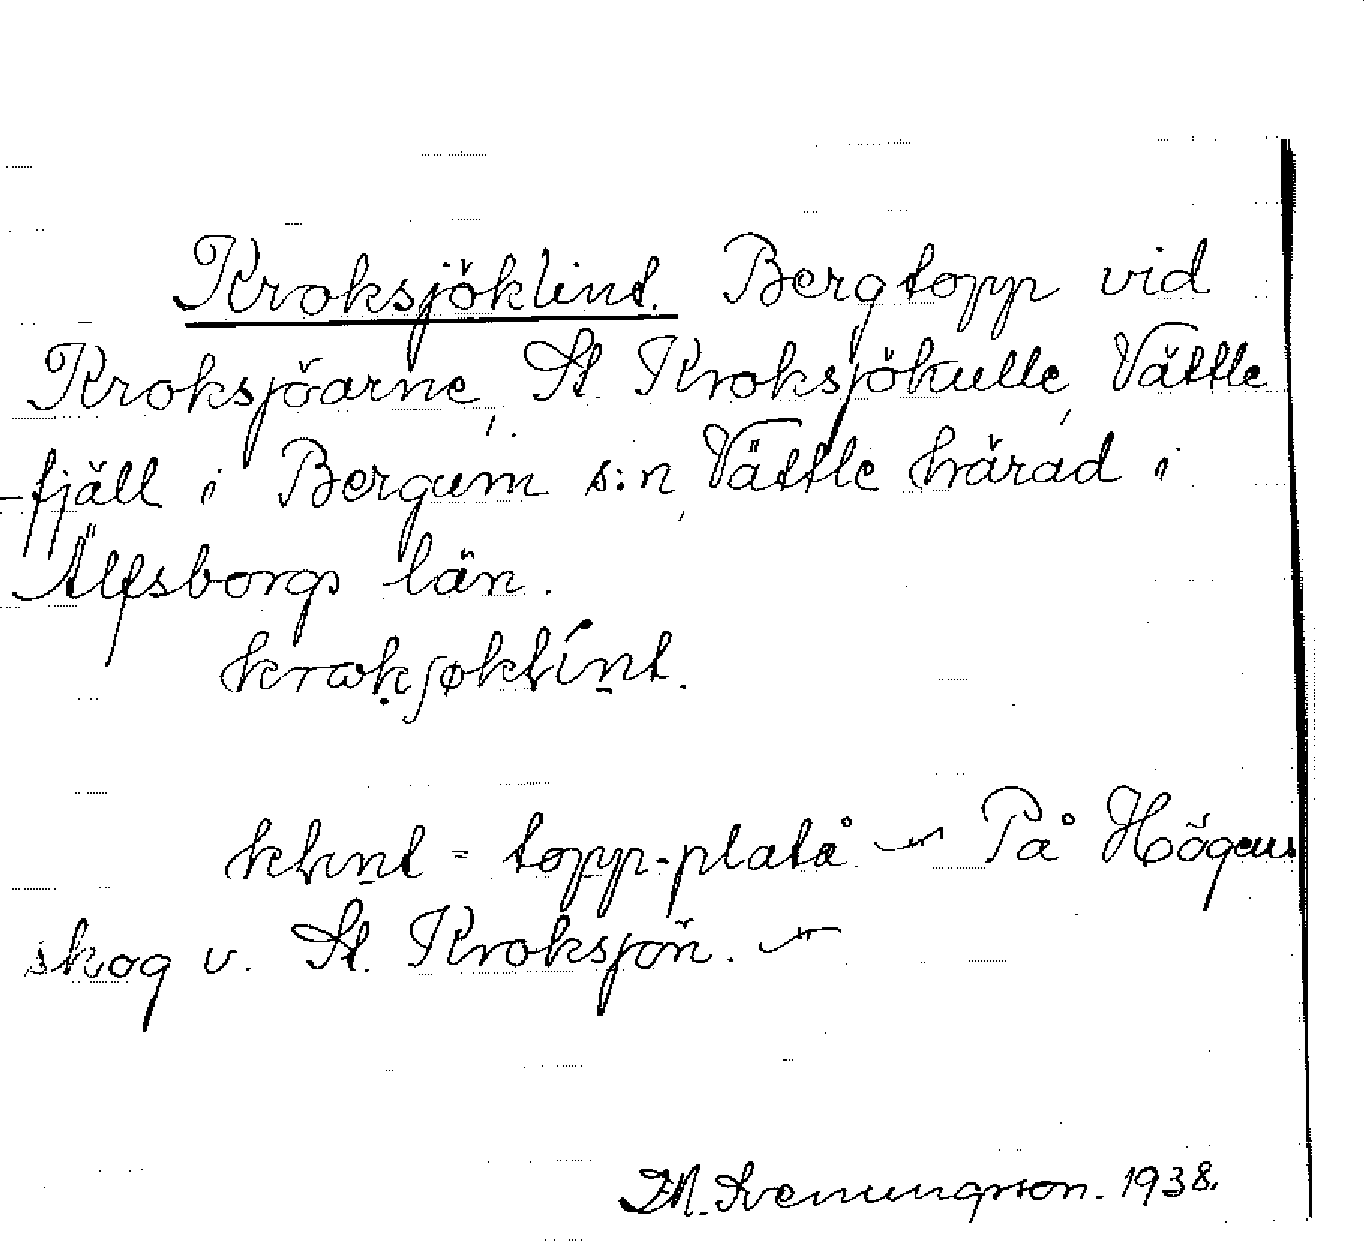 Kroksjöklint. Bergtopp vid
Kroksjöarne, St Kroksjökulle, Vättle
fjäll i Bergum s:n, Vättle härad i
Älfsborgs län.
klint = topp-platå — På Högens
skog v. St. Kroksjön. —
Svenungsson. 1938.